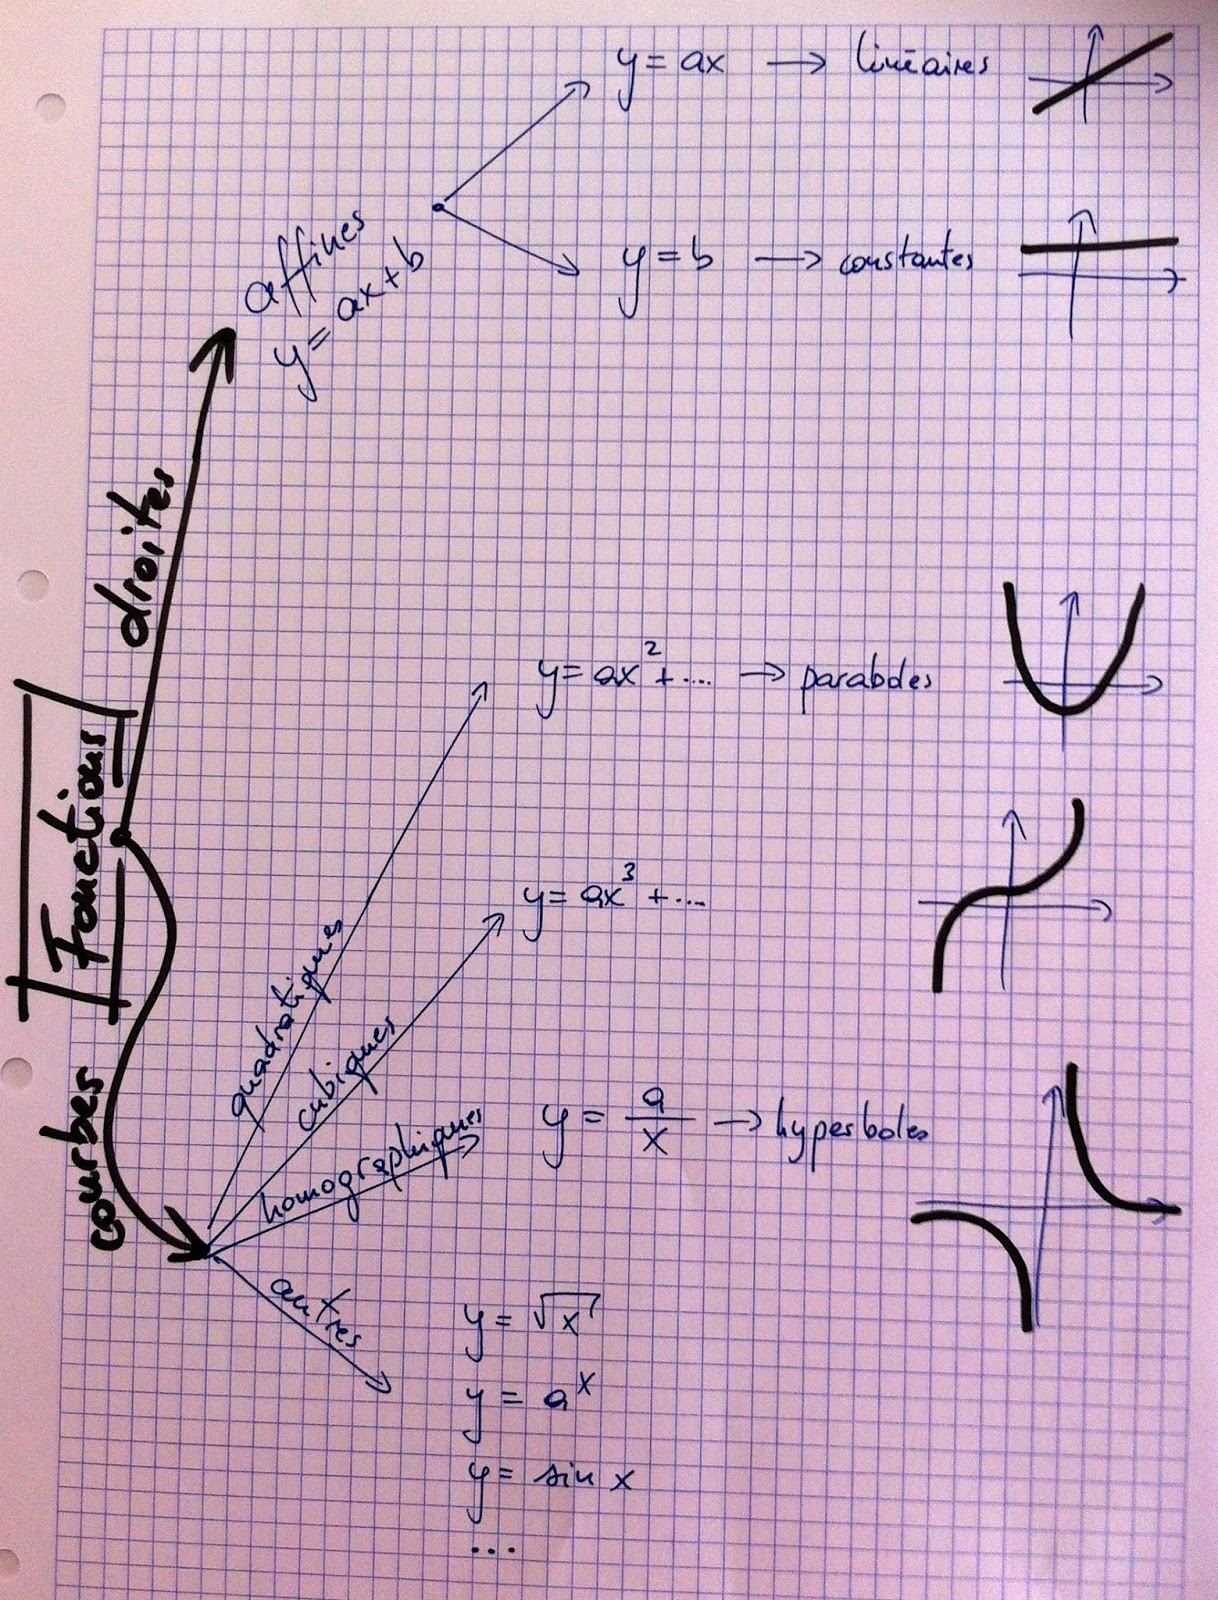 Fonctions
droites
affines
y = ax + b
y = ax → linéaires
y = b → constantes
courbes
quadratiques
y = ax² + .... → paraboles
cubiques
y = ax³ + ...
homographiques
y = a/x → hyperboles
autres
y = √x
y = aˣ
y = sin x
...